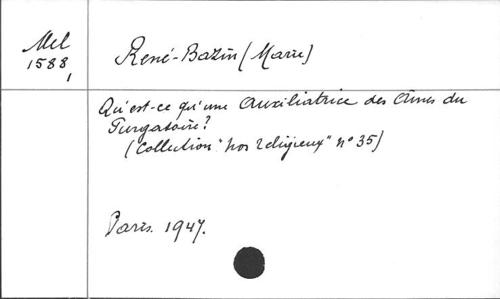 Mel
1588
1
René-Bazin (Marie)
Qu'est-ce qu'une Auxiliatrice des Âmes du
Purgatoire?
(Collection "nos religieux" n° 35)
Paris. 1947.